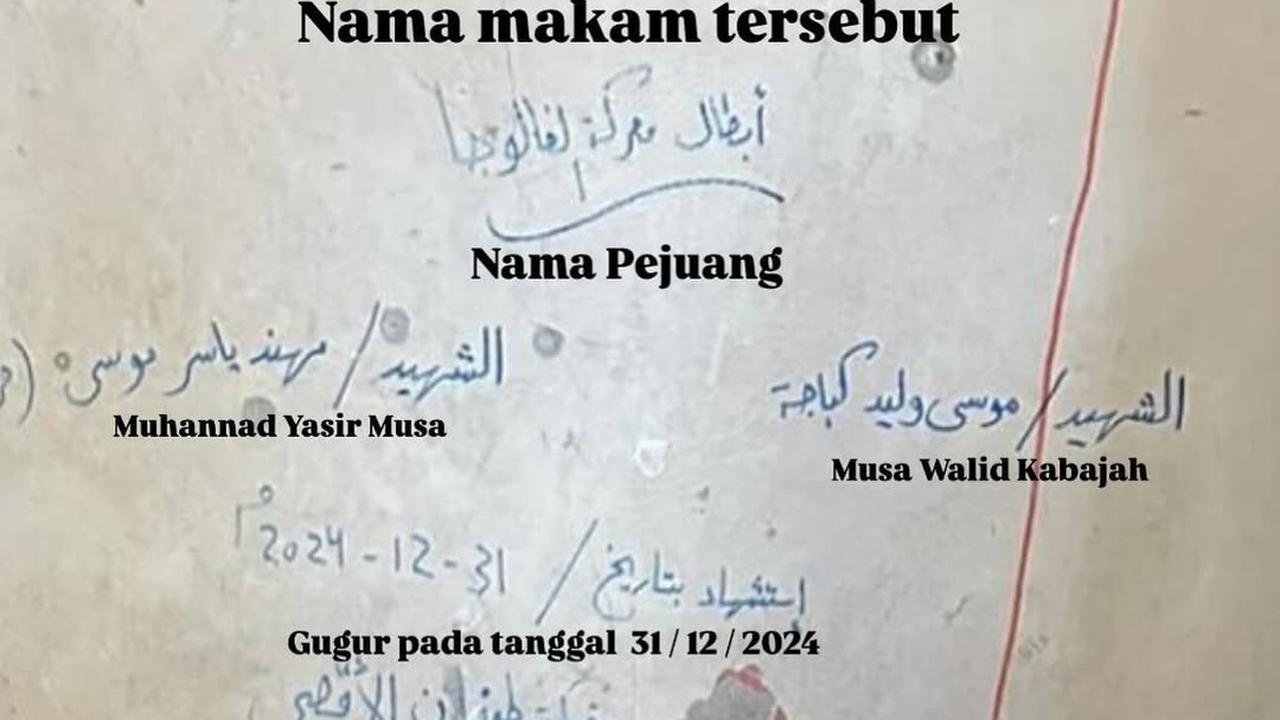 Nama makam tersebut
أبطال معركة
Nama Pejuang
الشهيد / موسى وليد كباجة
الشهيد / مهند ياسر موسى (
Muhannad Yasir Musa
Musa Walid Kabajah
إستشهاد بتاريخ / 31-12-2024م
Gugur pada tanggal 31 / 12 / 2024
طوفان الأقصى